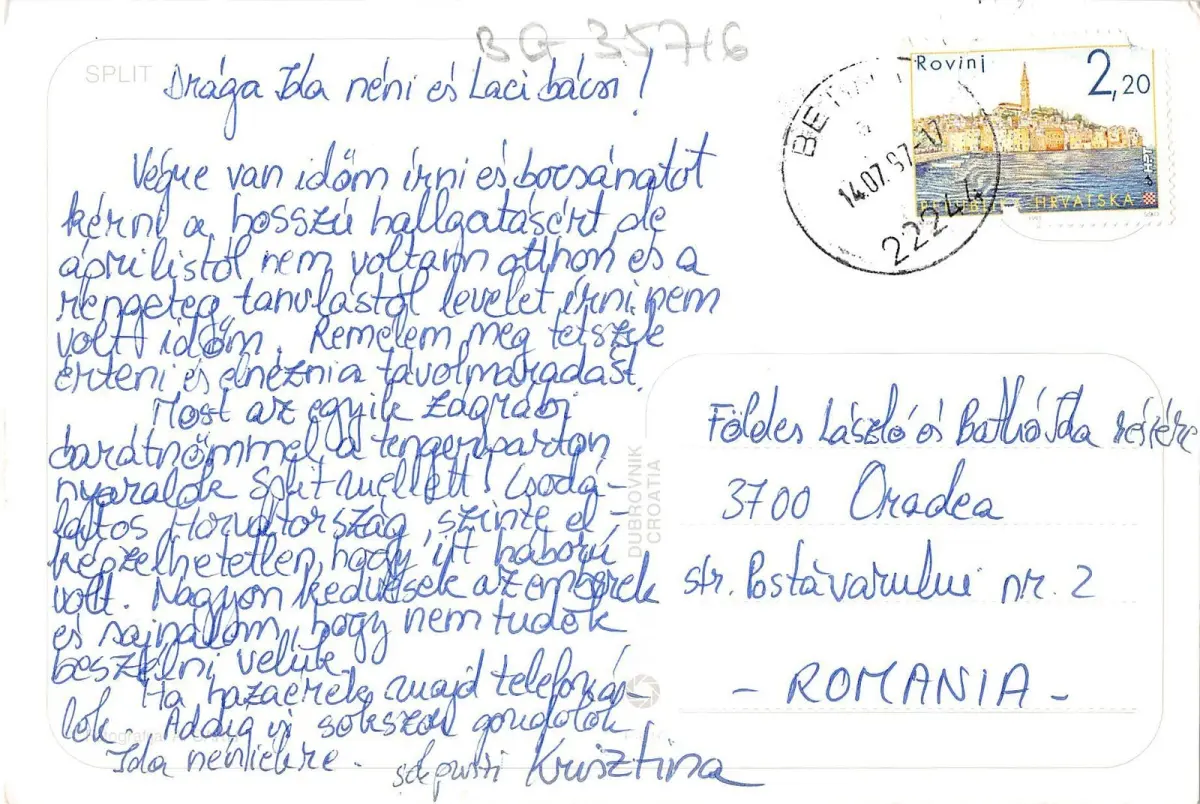 BG 35716
SPLIT
Drága Ida néni és Laci bácsi!
Végre van időm írni és bocsánatot
kérni a hosszú hallgatásért de
áprilistól nem voltam otthon és a
rengeteg tanulástól levelet írni nem
volt időm. Remélem meg tetszik
érteni és elnéznia távolmaradást.
Most az egyik zágrábi
barátnőmmel a tengerparton
nyaralok Split mellett! Csodá-
latos Horvátország, szinte el-
képzelhetetlen, hogy itt háború
volt. Nagyon kedvesek az emberek
és sajnálom, hogy nem tudok
beszélni velük.
Ha hazaérek majd telefoná-
lok. Addig is sokszor gondolok
Ida néniékre.
Krisztina
DUBROVNIK
CROATIA
Rovinj
2,20
REPUBLIKA HRVATSKA
14.07.97-17
22244
Földes László és Batkó Ida részére
3700 Oradea
str. Postăvarului nr. 2
- ROMANIA -